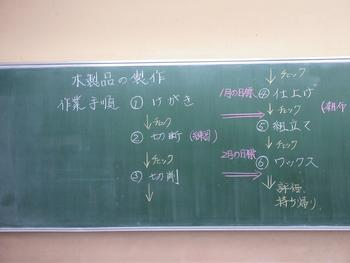 木製品の製作
作業手順 ① けがき
↓チェック
② 切断 (練習)
↓チェック
③ 切削
↓
↓チェック
1月の目標 ④ 仕上げ
↓チェック
⑤ 組立て
↓チェック
2月の目標 ⑥ ワックス
⇓ 評価、
持ち帰り